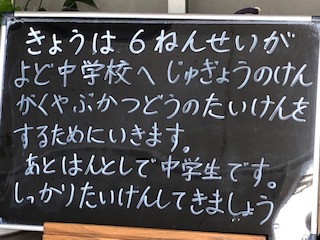 きょうは6ねんせいが
よど中学校へじゅぎょうのけん
がくやぶかつどうのたいけんを
するためにいきます。
あとはんとしで中学生です。
しっかりたいけんしてきましょう